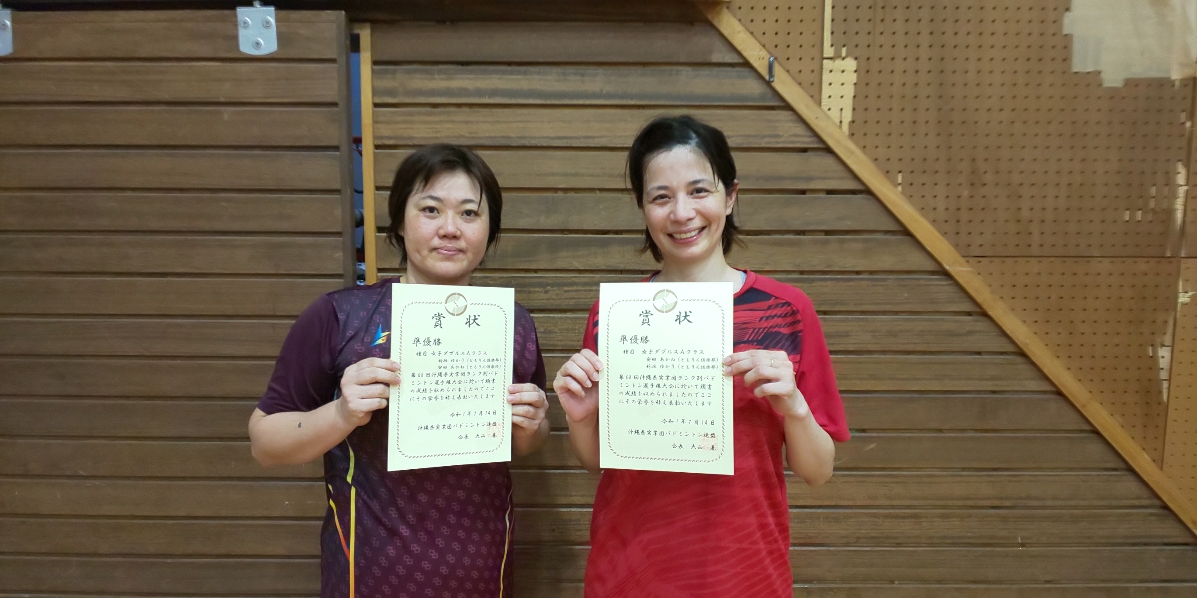 賞状
準優勝
種目 女子ダブルスAクラス
(ともりん倶楽部)
(ともりん倶楽部)
ミントン選手権大会に於いて頭書
の成績を収められましたのでここ
にその栄誉を讃え表彰いたします
令和1年7月14日
沖縄県実業団バドミントン連盟
会長 大山
賞状
準優勝
種目 女子ダブルスAクラス
(ともりん倶楽部)
(ともりん倶楽部)
沖縄県実業団ランク別バド
ミントン選手権大会に於いて頭書
の成績を収められましたのでここ
にその栄誉を讃え表彰いたします
令和1年7月14日
沖縄県実業団バドミントン連盟
会長 大山